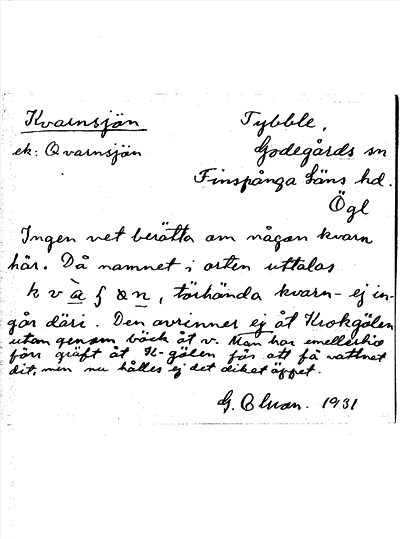 Kvarnsjön
Tybble,
ek: Qvarnsjön
Godegårds sn
Finspånga läns hd.
Ögl
Ingen vet berätta om någon kvarn
här. Då namnet i orten uttalas
, törhända kvarn- ej in-
går däri. Den avrinner ej åt Krokgölen
utan genom bäck åt v. Man har emellertid
förr gräft åt K-gölen för att få vattnet
dit, men nu hålles ej det diket öppet.
G. 1931